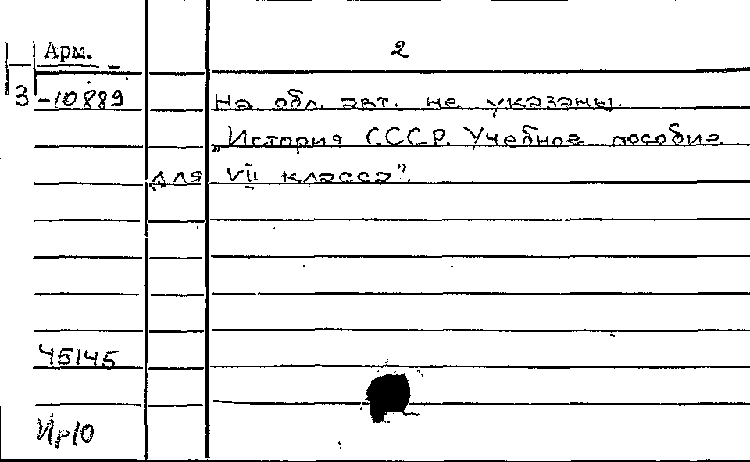 Арм.
2
3 -10889
На обл. авт. не указаны.
„История СССР. Учебное пособие
для VII класса".
45145
Ир10